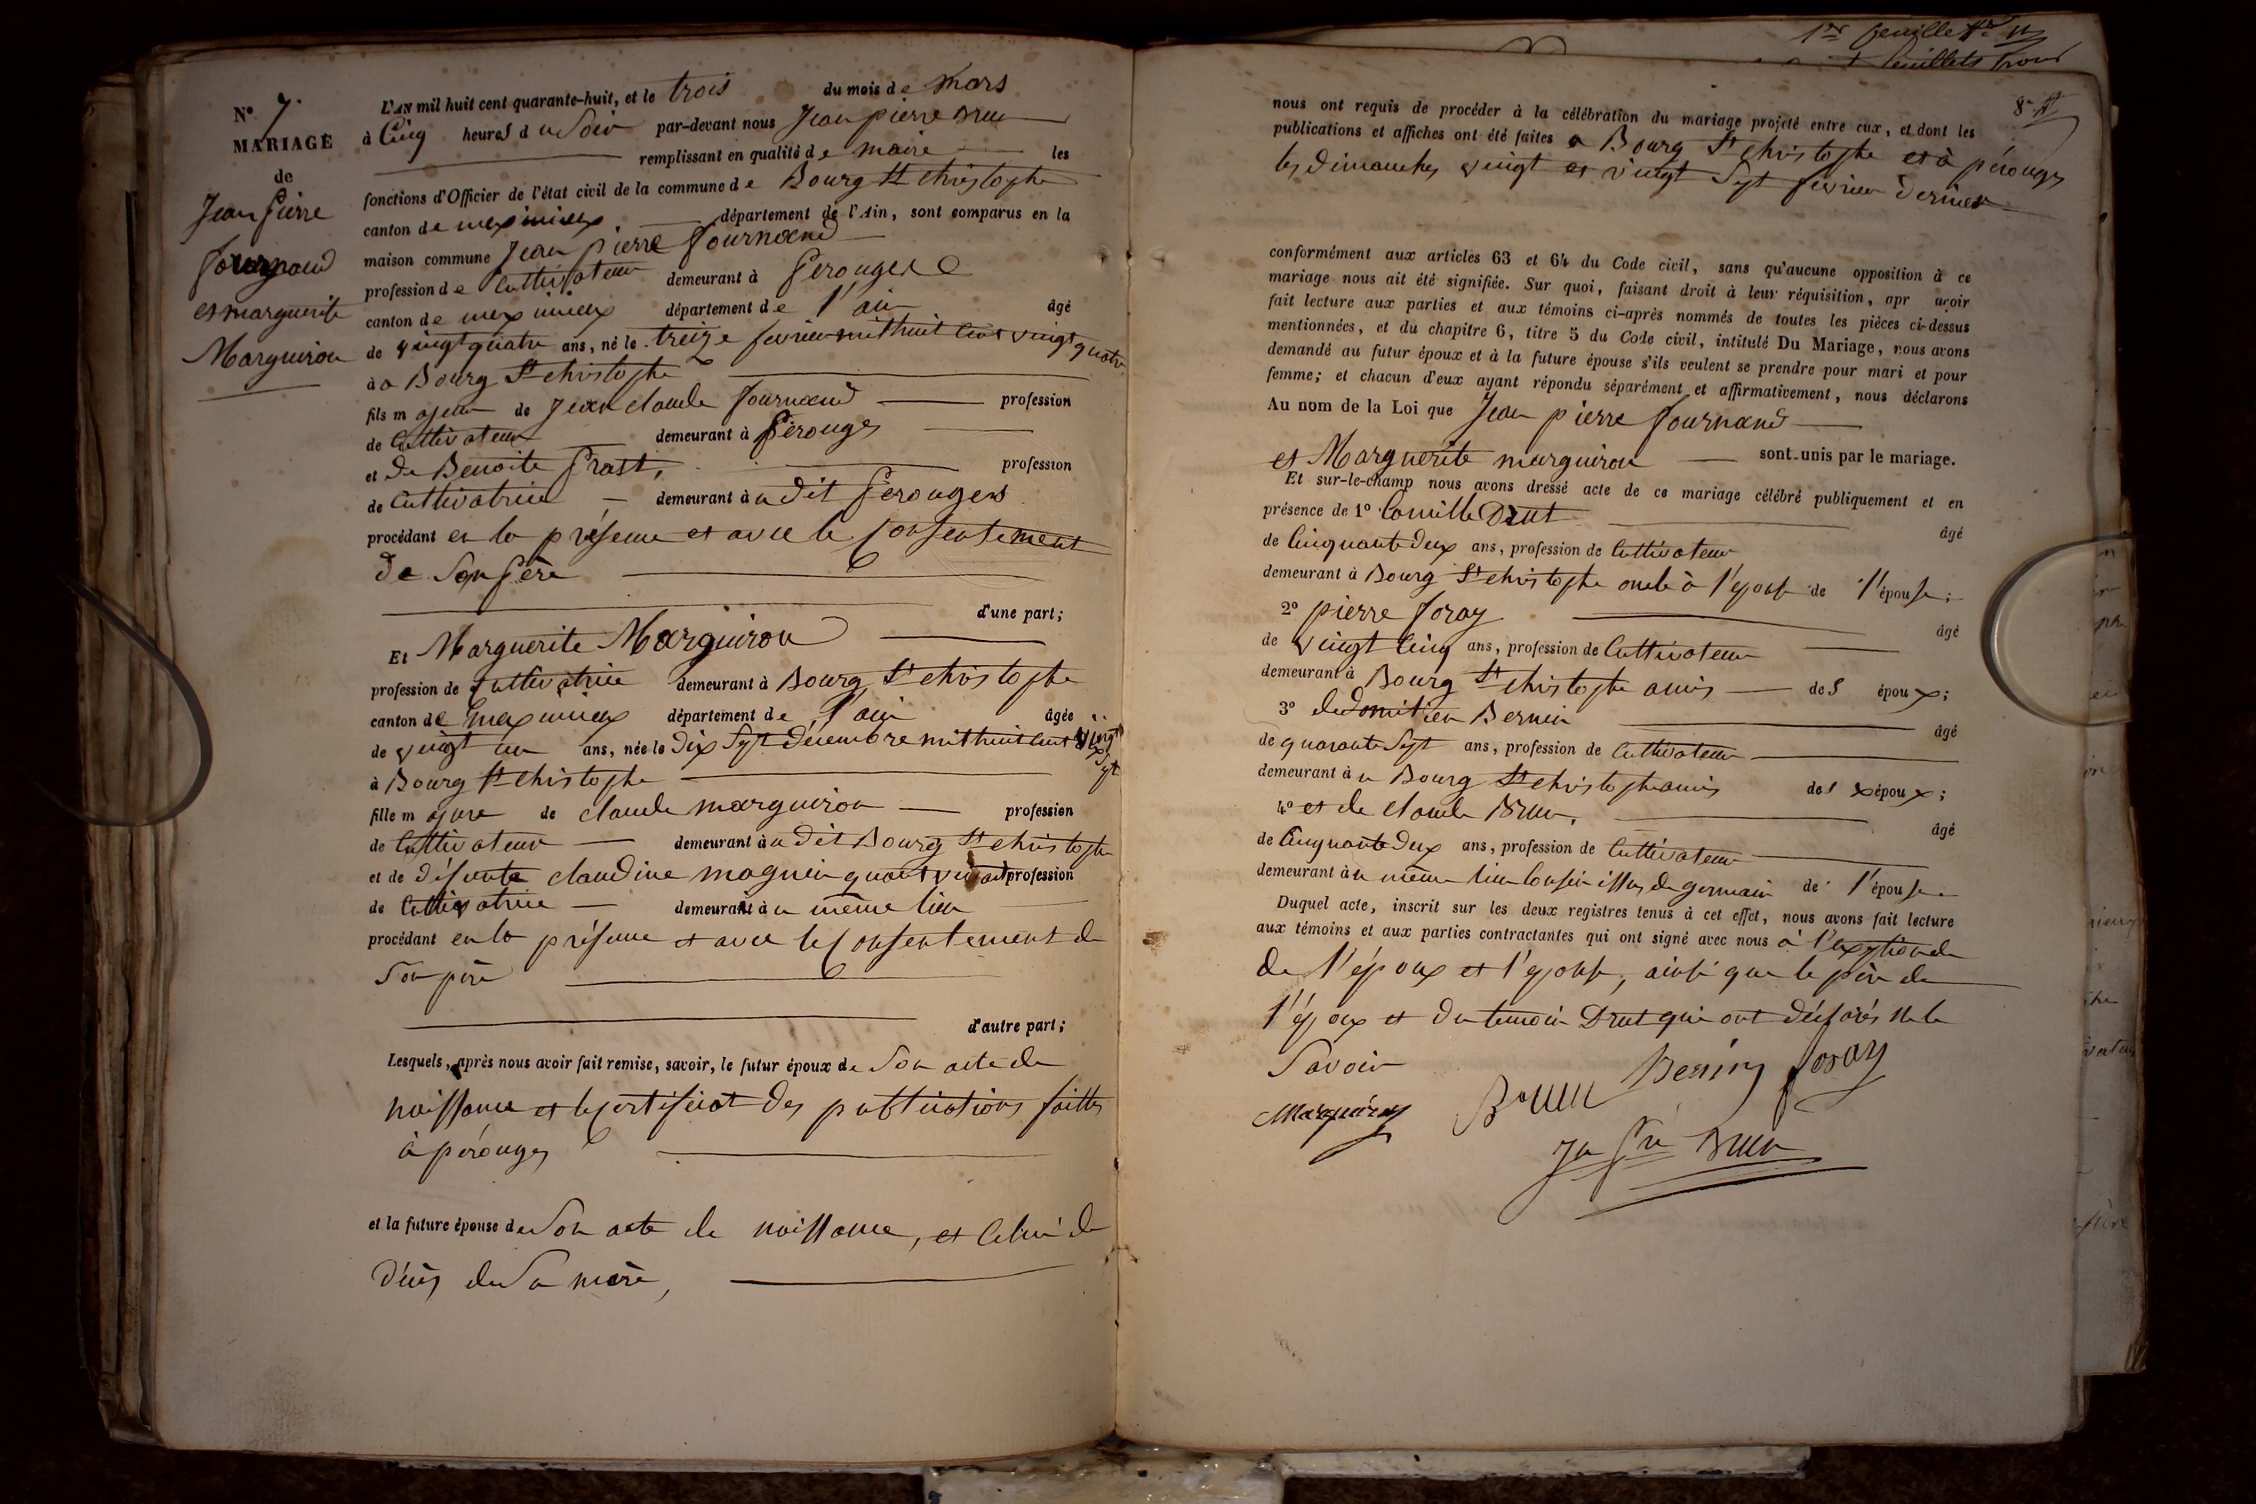 N° 7.
MARIAGE
de
Jean Pierre
Fournand
et marguerite
Marguiron
L'AN mil huit cent quarante-huit, et le trois du mois de mars
à Cinq heures du Soir par-devant nous Jean pierre Brun
remplissant en qualité de maire les
fonctions d'Officier de l'état civil de la commune de Bourg St christophe
canton de meximieux département de l'Ain, sont comparus en la
maison commune Jean Pierre fournand
profession de Cultivateur demeurant à Perouges
canton de meximieux département de l'ain âgé
de vingt quatre ans, né le treize fevrier mil huit cent vingt quatre
à a Bourg St christophe
fils majeur de Jean claude fournand profession
de Cultivateur demeurant à Pérouges
et de Benoite Prost, profession
de Cultivatrice demeurant à u dit Perouges
procédant en la présence et avec le Consentement
de Son Père
d'une part;
Et Marguerite Marguiron
profession de Cultivatrice demeurant à Bourg St christophe
canton de meximieux département de l'ain âgée
de vingt un ans, née le Dix Sept Décembre mil huit cent vingt Six
à Bourg St christophe
fille majeure de claude marguiron profession
de Cultivateur demeurant à u dit Bourg St christophe
et de défunte claudine magnin quant vivait profession
de Cultivatrice demeurant à u même lieu
procédant en la présence et avec le Consentement de
Son père
d'autre part;
Lesquels, après nous avoir fait remise, savoir, le futur époux de Son acte de
naissance et le certificat des publications faittes
à pérouges
et la future épouse de Son acte de naissance, et Celui de
Décès de Sa mère,
8
nous ont requis de procéder à la célébration du mariage projeté entre eux, et dont les
publications et affiches ont été faites a Bourg St christophe et à pérouges
les dimanches vingt et vingt Sept fevrier dernier
conformément aux articles 63 et 64 du Code civil, sans qu'aucune opposition à ce
mariage nous ait été signifiée. Sur quoi, faisant droit à leur réquisition, apr avoir
fait lecture aux parties et aux témoins ci-après nommés de toutes les pièces ci-dessus
mentionnées, et du chapitre 6, titre 5 du Code civil, intitulé Du Mariage, nous avons
demandé au futur époux et à la future épouse s'ils veulent se prendre pour mari et pour
femme; et chacun d'eux ayant répondu séparément et affirmativement, nous déclarons
Au nom de la Loi que Jean pierre fournand
et Marguerite marguiron sont unis par le mariage.
Et sur-le-champ nous avons dressé acte de ce mariage célébré publiquement et en
présence de 1° Camille Drut âgé
de Cinquante deux ans, profession de Cultivateur
demeurant à Bourg St christophe oncle à l'épouse de l'épouse;
2° pierre foray âgé
de vingt Cinq ans, profession de Cultivateur
demeurant à Bourg St christophe amis des époux;
3° de domitien Bernin âgé
de quarante Sept ans, profession de Cultivateur
demeurant à u Bourg St christophe amis des époux;
4° et de claude Brun, âgé
de Cinquante deux ans, profession de Cultivateur
demeurant à u même lieu Cousin issus de germain de l'épouse.
Duquel acte, inscrit sur les deux registres tenus à cet effet, nous avons fait lecture
aux témoins et aux parties contractantes qui ont signé avec nous à l'exeption de
de l'époux et l'épouse, ainsi que le père de
l'époux et du temoin Drut qui ont déclarés ne le
Savoir
Bernin foray
Marguiron Brun
Jn Pre Brun